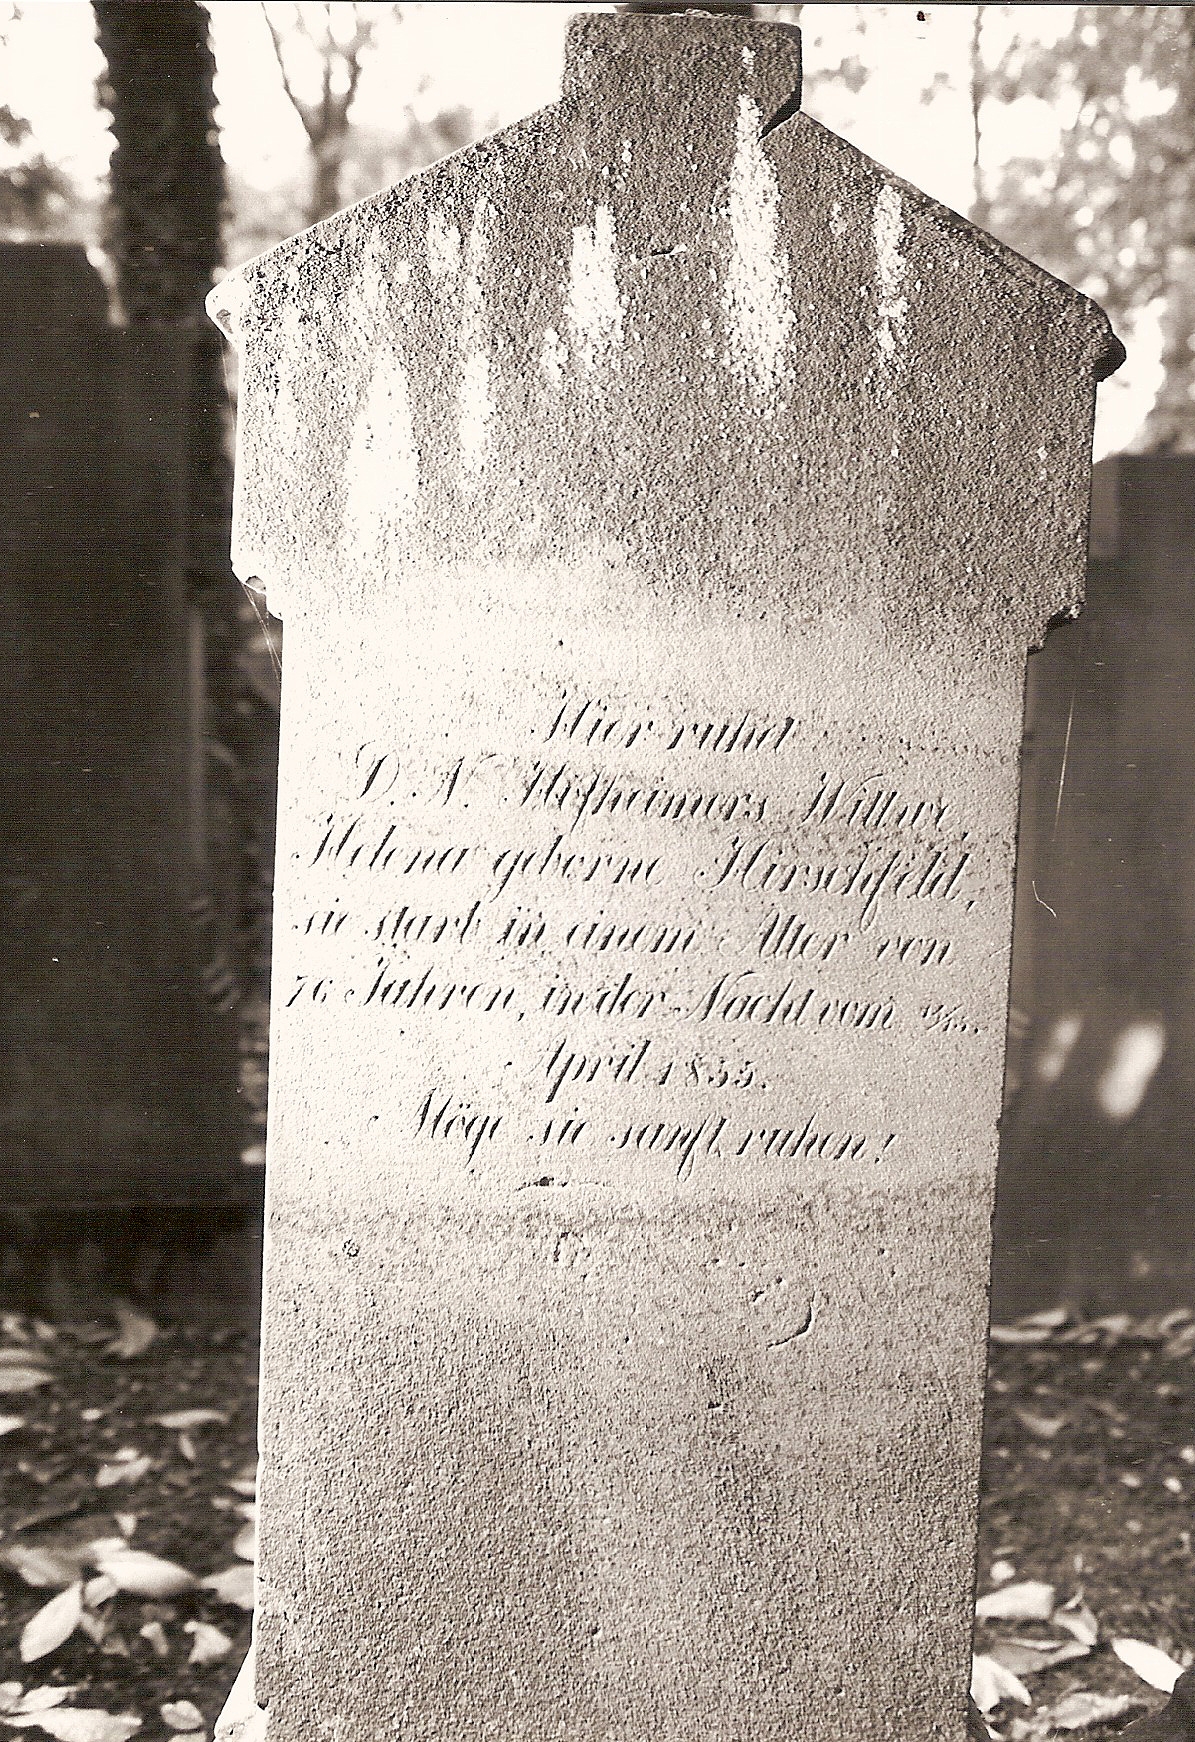 Hier ruhet
D. N. Hofheimers Wittwe,
Helena geborne Hirschfeld,
sie starb in einem Alter von
76 Jahren, in der Nacht vom 12/13.
April 1855.
Möge sie sanft ruhen!